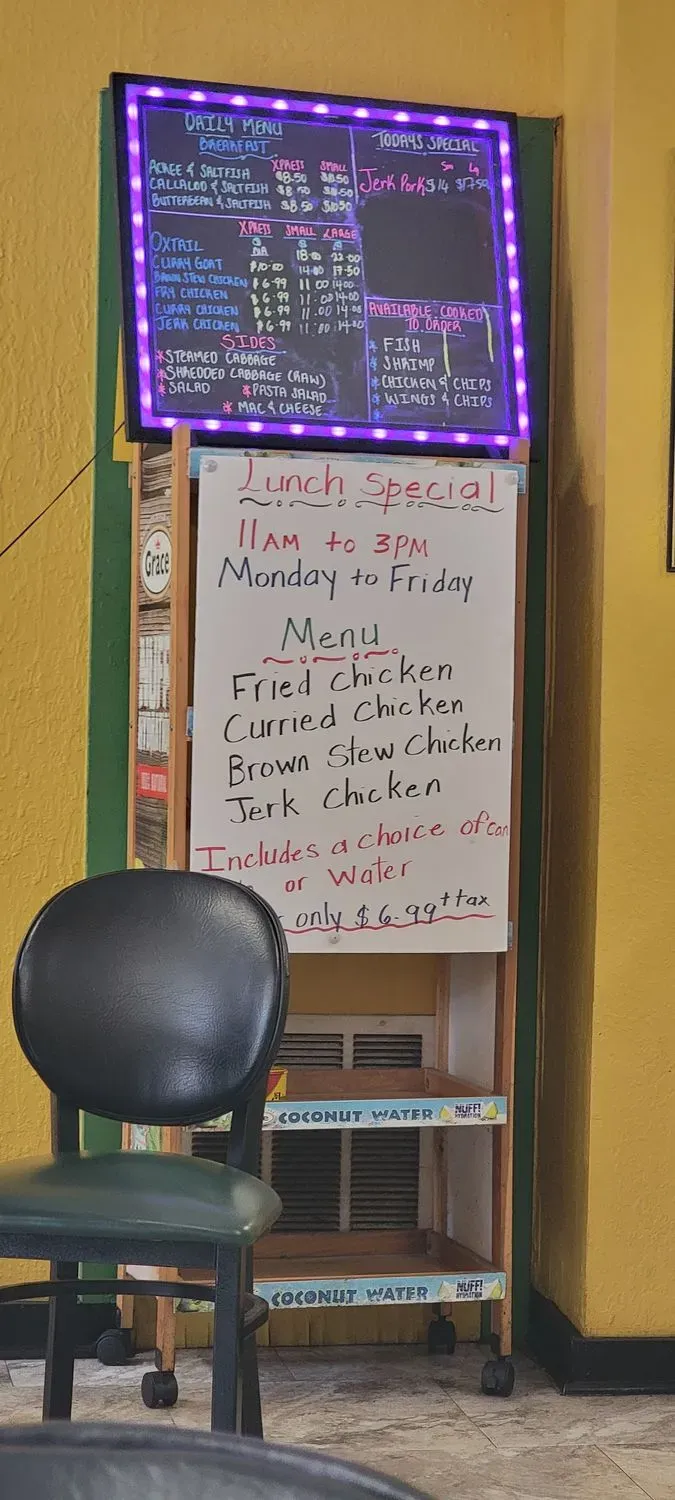 DAILY MENU
BREAKFAST
XPRESS SMALL
ACKEE & SALTFISH $8.50
CALLALOO & SALTFISH $8.50
BUTTERBEAN & SALTFISH $8.50 $10.50
XPRESS SMALL LARGE
OXTAIL N/A 18.00 22.00
CURRY GOAT $10.00 14.00 17.50
BROWN STEW CHICKEN $6.99 11.00 14.00
FRY CHICKEN $6.99 11.00 14.00
CURRY CHICKEN $6.99 11.00 14.00
JERK CHICKEN $6.99 11.00 14.00
SIDES
* STEAMED CABBAGE
* SHREDDED CABBAGE (RAW)
* SALAD * PASTA SALAD
* MAC & CHEESE
TODAYS SPECIAL
Sm Lg
Jerk Pork $14 $17.50
AVAILABLE COOKED
TO ORDER
* FISH
* SHRIMP
* CHICKEN & CHIPS
* WINGS & CHIPS
Lunch Special
11AM to 3PM
Monday to Friday
Menu
Fried Chicken
Curried Chicken
Brown Stew Chicken
Jerk Chicken
Includes a choice of can
or Water
only $6.99 + tax
Grace
COCONUT WATER NUFF! HYDRATION
COCONUT WATER NUFF! HYDRATION